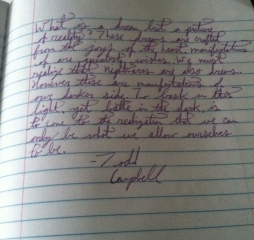 What is a dream but a picture
of reality? These images are crafted
from the joys of the heart manifestations
of our greatest wishes. We must
realize that nightmares are also dreams.
However these are manifestations of
our darker side. To bask in this
light, yet bathe in the dark, is
to come to the realization that we can
only be what we allow ourselves
to be.
-Todd
Campbell